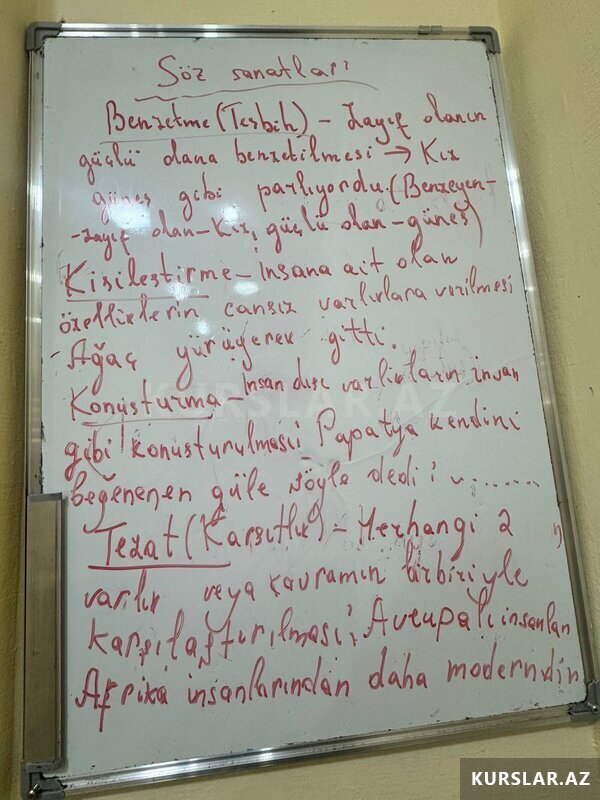 Söz sanatları
Benzetme (Teşbih) - Zayıf olanın
güçlü olana benzetilmesi → Kız
güneş gibi parlıyordu. (Benzeyen-
-zayıf olan-Kız, güçlü olan-güneş)
Kişileştirme - İnsana ait olan
özelliklerin cansız varlıklara verilmesi
- Ağaç yürüyerek gitti.
Konuşturma - İnsan dışı varlıkların insan
gibi konuşturulması; Papatya kendini
beğenenen güle şöyle dedi: "........
Tezat (Karşıtlık) - Herhangi 2 "
varlık veya kavramın birbiriyle
karşılaştırılması; Avrupalı insanlar
Afrika insanlarından daha moderndir
KURSLAR.AZ
KURSLAR.AZ